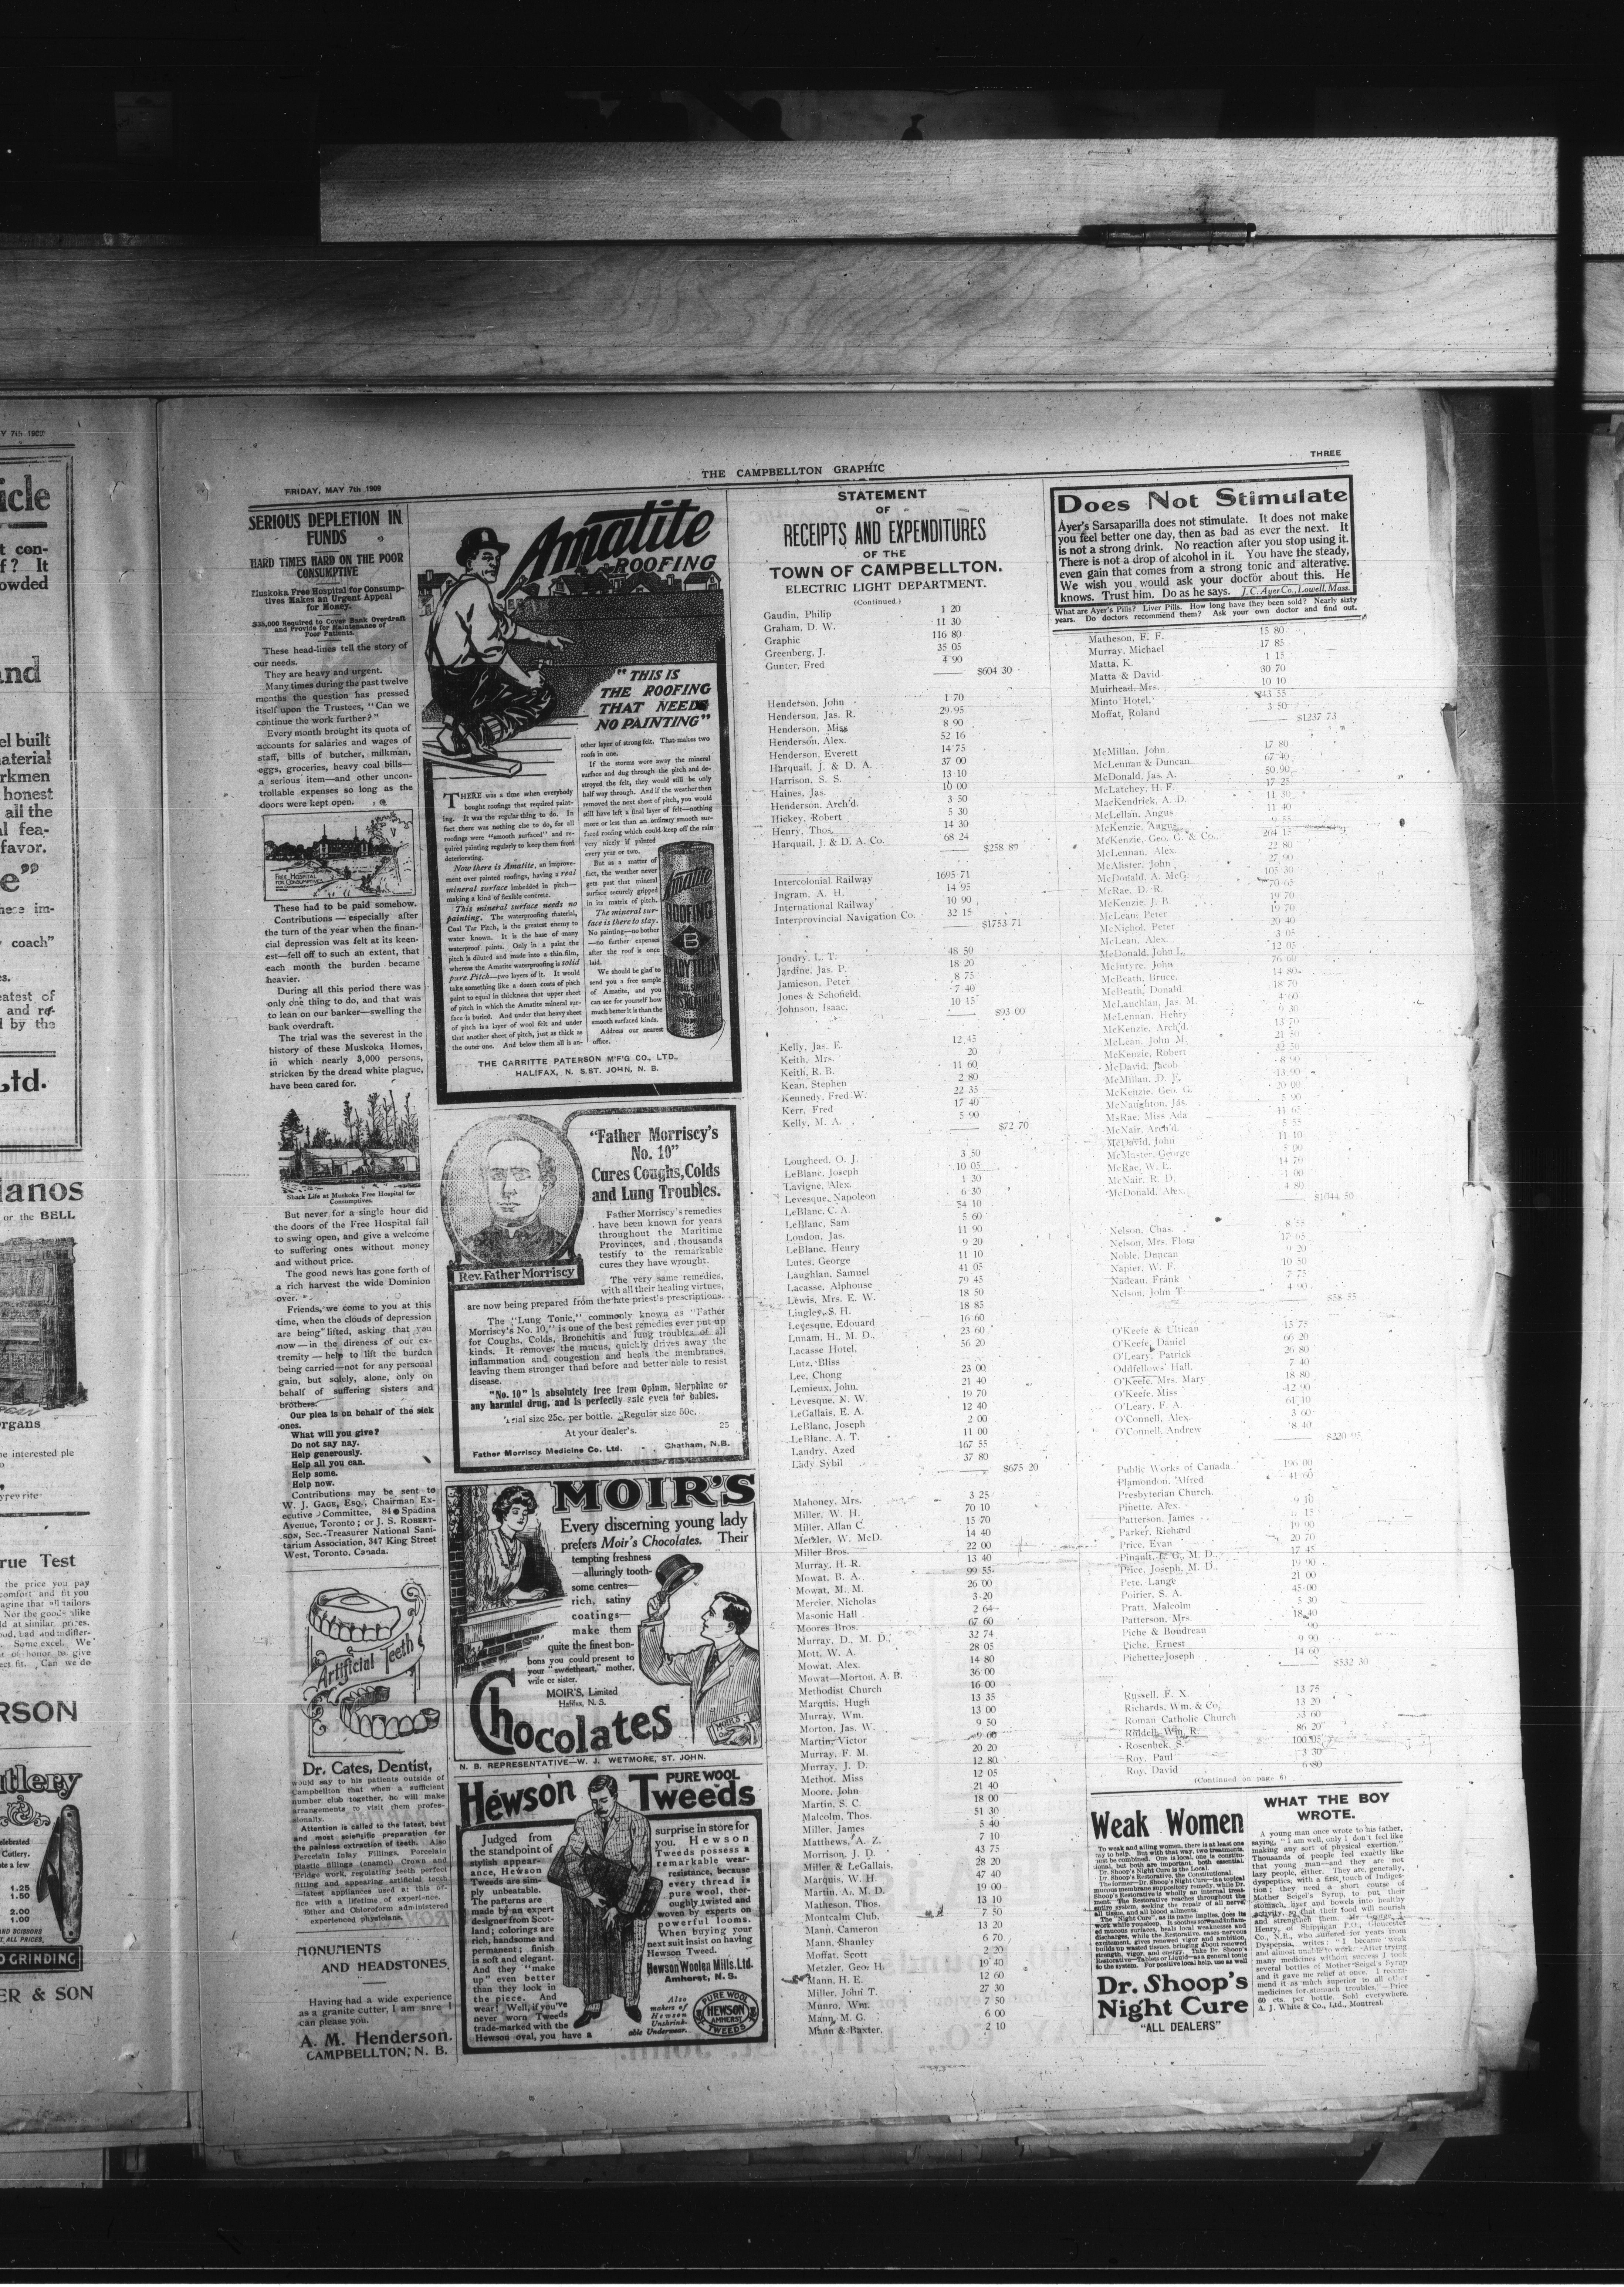 Y 7th 1909
icle
t con-
f? It
owded
and
el built
aterial
rkmen
honest
all the
al fea-
favor.
e"
hese im-
coach"
eatest of
and
d by the
Ltd.
ianos
or the BELL
rgans
rue Test
the price you pay
comfort and fit you
RSON
utlery
Cutlery.
1.25
1.50
2.00
1.00
D GRINDING
ER & SON
FRIDAY, MAY 7th 1909
THE CAMPBELLTON GRAPHIC
THREE
SERIOUS DEPLETION IN
FUNDS
HARD TIMES HARD ON THE POOR
CONSUMPTIVE
Muskoka Free Hospital for Consump-
tives Makes an Urgent Appeal
for Money.
$35,000 Required to Cover Bank Overdraft
and Provide for Maintenance of
Poor Patients.
These head-lines tell the story of
our needs.
They are heavy and urgent.
Many times during the past twelve
months the question has pressed
itself upon the Trustees, "Can we
continue the work further?"
Every month brought its quota of
accounts for salaries and wages of
staff, bills of butcher, milkman,
eggs, groceries, heavy coal bills—
a serious item—and other uncon-
trollable expenses so long as the
doors were kept open.
FREE HOSPITAL
FOR CONSUMPTIVES
These had to be paid somehow.
Contributions — especially after
the turn of the year when the finan-
cial depression was felt at its keen-
est—fell off to such an extent, that
each month the burden became
heavier.
During all this period there was
only one thing to do, and that was
to lean on our banker—swelling the
bank overdraft.
The trial was the severest in the
history of these Muskoka Homes,
in which nearly 3,000 persons,
stricken by the dread white plague,
have been cared for.
Shack Life at Muskoka Free Hospital for
Consumptives.
But never for a single hour did
the doors of the Free Hospital fail
to swing open, and give a welcome
to suffering ones without money
and without price.
The good news has gone forth of
a rich harvest the wide Dominion
over.
Friends, we come to you at this
time, when the clouds of depression
are being lifted, asking that you
now—in the direness of our ex-
tremity — help to lift the burden
being carried—not for any personal
gain, but solely, alone, only on
behalf of suffering sisters and
brothers.
Our plea is on behalf of the sick
ones.
What will you give?
Do not say nay.
Help generously.
Help all you can.
Help some.
Help now.
Contributions may be sent to
W. J. GAGE, Esq., Chairman Ex-
ecutive Committee, 84 Spadina
Avenue, Toronto; or J. S. ROBERT-
SON, Sec.-Treasurer National Sani-
tarium Association, 347 King Street
West, Toronto, Canada.
Artificial Teeth
Dr. Cates, Dentist,
would say to his patients outside of
Campbellton that when a sufficient
number club together, he will make
arrangements to visit them profes-
sionally.
Attention is called to the latest, best
and most scientific preparation for
the painless extraction of teeth. Also
Porcelain Inlay Fillings, Porcelain
plastic fillings (enamel) Crown and
Bridge work, regulating teeth perfect
fitting and appearing artificial teeth
—latest appliances used at this of-
fice with a lifetime of experience.
Ether and Chloroform administered
experienced physicians.
MONUMENTS
AND HEADSTONES,
Having had a wide experience
as a granite cutter, I am snre I
can please you.
A. M. Henderson.
CAMPBELLTON, N. B.
Amatite
ROOFING
"THIS IS
THE ROOFING
THAT NEEDS
NO PAINTING"
THERE was a time when everybody
bought roofings that required paint-
ing. It was the regular thing to do. In
fact there was nothing else to do, for all
roofings were "smooth surfaced" and re-
quired painting regularly to keep them from
deteriorating.
Now there is Amatite, an improve-
ment over painted roofings, having a real
mineral surface imbedded in pitch—
making a kind of flexible concrete.
This mineral surface needs no
painting. The waterproofing material,
Coal Tar Pitch, is the greatest enemy to
water known. It is the base of many
waterproof paints. Only in a paint the
pitch is diluted and made into a thin film,
whereas the Amatite waterproofing is solid
pure Pitch—two layers of it. It would
take something like a dozen coats of pitch
paint to equal in thickness that upper sheet
of pitch in which the Amatite mineral sur-
face is buried. And under that heavy sheet
of pitch is a layer of wool felt and under
that another sheet of pitch, just as thick as
the outer one. And below them all is an-
other layer of strong felt. That makes two
roofs in one.
If the storms wore away the mineral
surface and dug through the pitch and de-
stroyed the felt, they would still be only
half way through. And if the weather then
removed the next sheet of pitch, you would
still have left a final layer of felt—nothing
more or less than an ordinary smooth sur-
faced roofing which could keep off the rain
very nicely if painted
every year or two.
But as a matter of
fact, the weather never
gets past that mineral
surface securely gripped
in its matrix of pitch.
The mineral sur-
face is there to stay.
No painting—no bother
—no further expenses
after the roof is once
laid.
We should be glad to
send you a free sample
of Amatite, and you
can see for yourself how
much better it is than the
smooth surfaced kinds.
Address our nearest
office.
Amatite
ROOFING
B
READY TO LAY
THE CARRITTE PATERSON M'F'G CO., LTD.,
HALIFAX, N. S. ST. JOHN, N. B.
"Father Morriscy's
No. 10"
Cures Coughs, Colds
and Lung Troubles.
Rev. Father Morriscy
Father Morriscy's remedies
have been known for years
throughout the Maritime
Provinces, and thousands
testify to the remarkable
cures they have wrought.
The very same remedies,
with all their healing virtues,
are now being prepared from the late priest's prescriptions.
The "Lung Tonic," commonly known as "Father
Morriscy's No. 10," is one of the best remedies ever put up
for Coughs, Colds, Bronchitis and lung troubles of all
kinds. It removes the mucus, quickly drives away the
inflammation and congestion and heals the membranes,
leaving them stronger than before and better able to resist
disease.
"No. 10" is absolutely free from Opium, Morphine or
any harmful drug, and is perfectly safe even for babies.
Trial size 25c. per bottle. Regular size 50c.
At your dealer's.
25
Father Morriscy Medicine Co. Ltd. - - Chatham, N.B.
MOIR'S
Every discerning young lady
prefers Moir's Chocolates. Their
tempting freshness
—alluringly tooth-
some centres—
rich, satiny
coatings—
make them
quite the finest bon-
bons you could present to
your "sweetheart," mother,
wife or sister.
MOIR'S, Limited
Halifax, N. S.
Chocolates
MOIR'S
N. B. REPRESENTATIVE—W. J. WETMORE, ST. JOHN.
Hewson PURE WOOL
Tweeds
Judged from
the standpoint of
stylish appear-
ance, Hewson
Tweeds are sim-
ply unbeatable.
The patterns are
made by an expert
designer from Scot-
land; colorings are
rich, handsome and
permanent; finish
is soft and elegant.
And they "make
up" even better
than they look in
the piece. And
wear! Well, if you've
never worn Tweeds
trade-marked with the
Hewson oval, you have a
surprise in store for
you. Hewson
Tweeds possess a
remarkable wear-
resistance, because
every thread is
pure wool, thor-
oughly twisted and
woven by experts on
powerful looms.
When buying your
next suit insist on having
Hewson Tweed.
Hewson Woolen Mills, Ltd.
Amherst, N. S.
Also
makers of
Hewson
Unshrink-
able Underwear.
PURE WOOL
HEWSON
AMHERST
TWEEDS
STATEMENT
OF
RECEIPTS AND EXPENDITURES
OF THE
TOWN OF CAMPBELLTON.
ELECTRIC LIGHT DEPARTMENT.
(Continued.)
Gaudin, Philip 1 20
Graham, D. W. 11 30
Graphic 116 80
Greenberg, J. 35 05
Gunter, Fred 4 90
$604 30
Henderson, John 1 70
Henderson, Jas. R. 29 95
Henderson, Miss 8 90
Henderson, Alex. 52 16
Henderson, Everett 14 75
Harquail, J. & D. A. 37 00
Harrison, S. S. 13 10
Haines, Jas. 10 00
Henderson, Arch'd. 3 50
Hickey, Robert 5 30
Henry, Thos. 14 30
Harquail, J. & D. A. Co. 68 24
$258 89
Intercolonial Railway 1695 71
Ingram, A. H. 14 95
International Railway 10 90
Interprovincial Navigation Co. 32 15
$1753 71
Jondry, L. T. 48 50
Jardine, Jas. P. 18 20
Jamieson, Peter 8 75
Jones & Schofield, 7 40
Johnson, Isaac, 10 15
$93 00
Kelly, Jas. E. 12 45
Keith, Mrs. 20
Keith, R. B. 11 60
Kean, Stephen 2 80
Kennedy, Fred W. 22 35
Kerr, Fred 17 40
Kelly, M. A. 5 90
$72 70
Lougheed, O. J. 3 50
LeBlanc, Joseph 10 05
Lavigne, Alex. 1 30
Levesque, Napoleon 6 30
LeBlanc, C. A. 54 10
LeBlanc, Sam 5 60
Loudon, Jas. 11 90
LeBlanc, Henry 9 20
Lutes, George 11 10
Laughlan, Samuel 41 05
Lacasse, Alphonse 79 45
Lewis, Mrs. E. W. 18 50
Lingley, S. H. 18 85
Levesque, Edouard 16 60
Lunam, H. M. D., 23 60
Lacasse Hotel, 56 20
Lutz, Bliss
Lee, Chong 23 00
Lemieux, John, 21 40
Levesque, N. W. 19 70
LeGallais, E. A. 12 40
LeBlanc, Joseph 2 00
LeBlanc, A. T. 11 00
Landry, Azed 167 55
Lady Sybil 37 80
$675 20
Mahoney, Mrs. 3 25
Miller, W. H. 70 10
Miller, Allan C. 15 70
Metzler, W. McD. 14 40
Miller Bros. 22 00
Murray, H. R. 13 40
Mowat, B. A. 99 55
Mowat, M. M. 26 00
Mercier, Nicholas 3 20
Masonic Hall 2 64
Moores Bros. 67 60
Murray, D., M. D., 32 74
Mott, W. A. 28 05
Mowat, Alex. 14 80
Mowat—Morton, A. B. 36 00
Methodist Church 16 00
Marquis, Hugh 13 35
Murray, Wm. 13 00
Morton, Jas. W. 9 50
Martin, Victor 9 60
Murray, F. M. 20 20
Murray, J. D. 12 80
Methot, Miss 12 05
Moore, John 21 40
Martin, S. C. 18 00
Malcolm, Thos. 51 30
Miller, James 5 40
Matthews, A. Z. 7 10
Morrison, J. D. 43 75
Miller & LeGallais, 28 20
Marquis, W. H. 47 40
Martin, A., M. D. 19 00
Matheson, Thos. 13 10
Montcalm Club, 7 50
Mann, Cameron 13 20
Mann, Shanley 6 70
Moffat, Scott 2 20
Metzler, Geo. H. 19 40
Mann, H. E. 12 60
Miller, John T. 27 30
Munro, Wm. 7 50
Mann, M. G. 6 00
Mann & Baxter, 2 10
Does Not Stimulate
Ayer's Sarsaparilla does not stimulate. It does not make
you feel better one day, then as bad as ever the next. It
is not a strong drink. No reaction after you stop using it.
There is not a drop of alcohol in it. You have the steady,
even gain that comes from a strong tonic and alterative.
We wish you would ask your doctor about this. He
knows. Trust him. Do as he says. J. C. Ayer Co., Lowell, Mass.
What are Ayer's Pills? Liver Pills. How long have they been sold? Nearly sixty
years. Do doctors recommend them? Ask your own doctor and find out.
Matheson, F. F. 15 80
Murray, Michael 17 85
Matta, K. 1 15
Matta & David 30 70
Muirhead, Mrs. 10 10
Minto Hotel, 243 55
Moffat, Roland 3 50
$1237 73
McMillan, John 17 80
McLennan & Duncan 67 40
McDonald, Jas. A. 50 90
McLatchey, H. F. 17 25
MacKendrick, A. D. 11 30
McLellan, Angus 11 40
McKenzie, Angus
McKenzie, Geo. G. & Co. 264 15
McLennan, Alex. 22 80
McAlister, John 27 90
McDonald, A. McG. 105 30
McRae, D. R. 70 65
McKenzie, J. B. 19 70
McLean, Peter 19 70
McNichol, Peter 20 40
McLean, Alex. 3 05
McDonald, John L. 12 05
McIntyre, John 76 60
McBeath, Bruce 14 80
McBeath, Donald 18 70
McLauchlan, Jas. M. 4 60
McLennan, Henry 9 30
McKenzie, Arch'd. 13 70
McLean, John M. 21 50
McKenzie, Robert 32 50
McDavid, Jacob 8 90
McMillan, D. F. 13 90
McKenzie, Geo. G. 20 00
McNaughton, Jas. 5 90
MsRae, Miss Ada 11 65
McNair, Arch'd. 5 55
McDavid, John 11 10
McMaster, George 5 00
McRae, W. E. 14 70
McNair, R. D. 1 00
McDonald, Alex. 4 80
$1044 50
Nelson, Chas. 8 55
Nelson, Mrs. Flora 17 05
Noble, Duncan 9 20
Napier, W. F. 10 50
Nadeau, Frank 7 75
Nelson, John T 4 90
$58 55
O'Keefe & Ultican 15 75
O'Keefe, Daniel 66 20
O'Leary, Patrick 26 80
Oddfellows' Hall, 7 40
O'Keefe, Mrs. Mary 18 80
O'Keefe, Miss 12 90
O'Leary, F. A. 61 10
O'Connell, Alex. 3 60
O'Connell, Andrew 8 40
$220 95
Public Works of Canada. 196 00
Plamondon, Alfred 41 60
Presbyterian Church,
Pinette, Alex. 9 10
Patterson, James 17 15
Parker, Richard 19 90
Price, Evan 20 70
Pinault, L. G., M. D., 17 45
Price, Joseph, M. D., 19 90
Pete, Lange 21 00
Poirier, S. A. 45 00
Pratt, Malcolm 5 30
Patterson, Mrs. 18 40
Piche & Boudreau 90
Piche, Ernest 9 90
Pichette, Joseph 14 60
$532 30
Russell, F. X. 13 75
Richards, Wm. & Co. 13 20
Roman Catholic Church 53 60
Riddell, Wm. R. 86 20
Rosenhek, S. 100 05
Roy, Paul 3 30
Roy, David 6 80
(Continued on page 6)
Weak Women
To weak and ailing women, there is at least one
way to help. But with that way, two treatments,
must be combined. One is local, one is constitu-
tional, but both are important, both essential.
Dr. Shoop's Night Cure is the Local.
Dr. Shoop's Restorative, the Constitutional.
The former—Dr. Shoop's Night Cure—is a topical
mucous membrane suppository remedy, while Dr.
Shoop's Restorative is wholly an internal treat-
ment. The Restorative reaches throughout the
entire system, seeking the repair of all nerve,
all tissue, and all blood ailments.
The "Night Cure", as its name implies, does its
work while you sleep. It soothes sore and inflam-
ed mucous surfaces, heals local weaknesses and
discharges, while the Restorative, eases nervous
excitement, gives renewed vigor and ambition,
builds up wasted tissues, bringing about renewed
strength, vigor, and energy. Take Dr. Shoop's
Restorative—Tablets or Liquid—as a general tonic
to the system. For positive local help, use as well
Dr. Shoop's
Night Cure
"ALL DEALERS"
WHAT THE BOY
WROTE.
A young man once wrote to his father,
saying, "I am well, only I don't feel like
making any sort of physical exertion."
Thousands of people feel exactly like
that young man—and they are not
lazy people, either. They are, generally,
dyspeptics, with a first touch of Indiges-
tion; they need a short course of
Mother Seigel's Syrup, to put their
stomach, liver and bowels into healthy
activity, so that their food will nourish
and strengthen them. Mr. George J.
Henry, of Shippigan P.O., Gloucester
Co., N.B., who suffered for years from
Dyspepsia, writes: "I became weak
and almost unable to work. After trying
many medicines without success I took
several bottles of Mother Seigel's Syrup
and it gave me relief at once. I recom-
mend it as much superior to all other
medicines for stomach troubles."—Price
60 cts. per bottle. Sold everywhere.
A. J. White & Co., Ltd., Montreal.